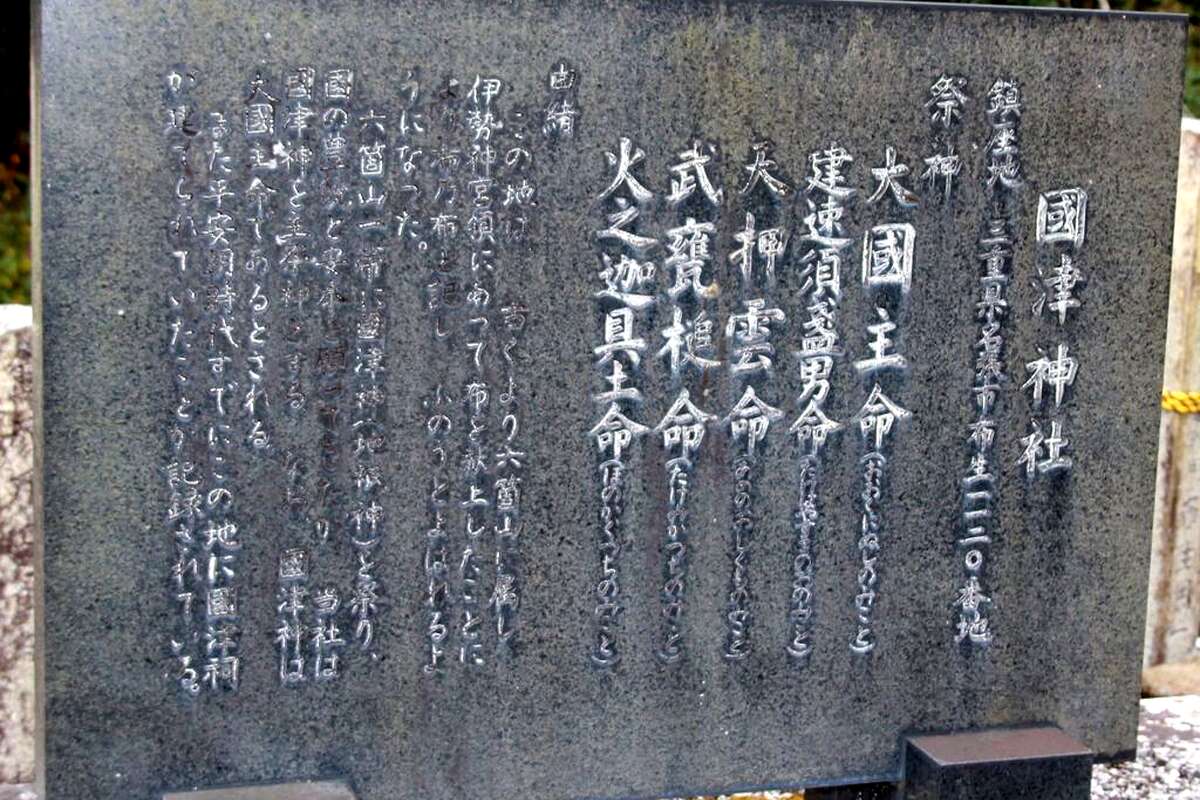 國津神社
鎮座地 三重県名張市布生二一三〇番地
祭神
大國主命(おおくにぬしのみこと)
建速須盞男命(たけはやすさのをのみこと)
天押雲命(あめのおしくものみこと)
武甕槌命(たけみかつちのみこと)
火之迦具土命(ほのかぐつちのみこと)
由緒
この地は 古くより六箇山に属し
伊勢神宮領にあって布を献上したことに
より 布乃布と記し ふのうとよばれるよ
うになつた。
六箇山一帯に國津神(地祇神)を祭り、
国の と安泰を願 当社は
國津神を主祭神とする 國津神は
大國主命であるとされる
また平安朝時代すでにこの地に國津祠
が建てられていたことが記録されている。